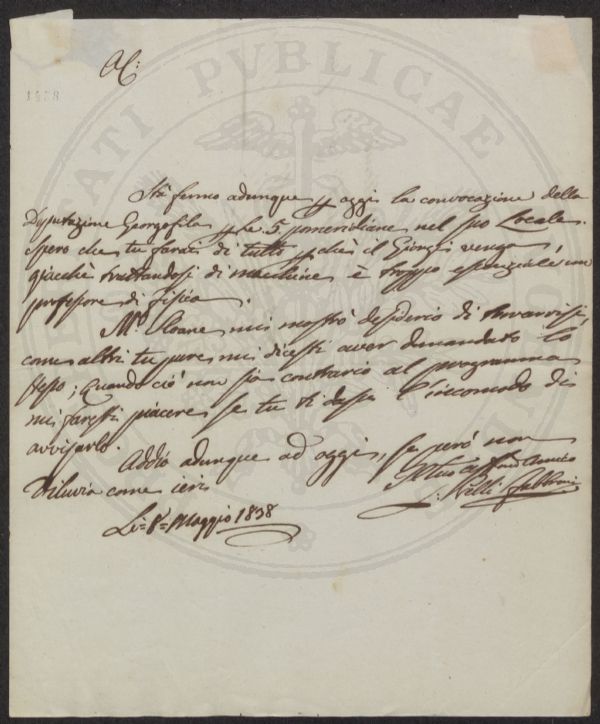 A. C.
1838
Sta fermo adunque p oggi la convocazione della
Deputazione Georgofila p le 5 pomeridiane nel suo Locale.
Spero che tu farai di tutto p chè il Giorgi venga,
giacchè trattandosi di macchine è troppo essenziale un
professore di fisica.
Mr. Sloane mi mostrò desiderio di trovarvisi,
come altri tu pure mi dicesti aver domandato lo
stesso; quando ciò non sia contrario al programma
mi faresti piacere se tu ti dassi l'incomodo di
avvisarlo.
Addio adunque ad oggi, se però non
diluvia come ieri
Il tuo aff amico
Pelli Fabbroni
Li = 8 = Maggio 1838
PUBLICAE